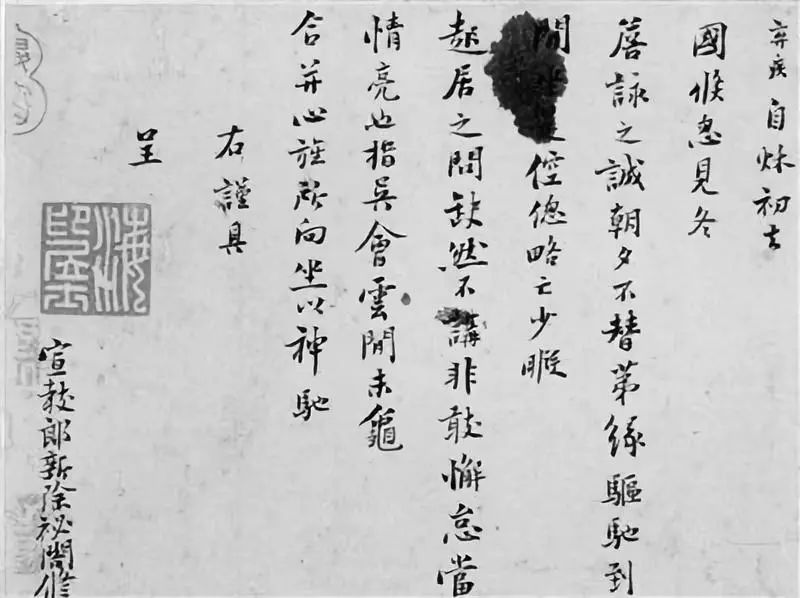 弃疾自秋初去
國倏忽見冬
詹詠之誠朝夕不替第緣驅馳到
間倥傯略亡少暇
起居之問缺然不講非敢懈怠當
情亮也指吳會雲間未龜
合并心旌所向坐以神馳
右謹具
呈
宣教郎新除祕閣修